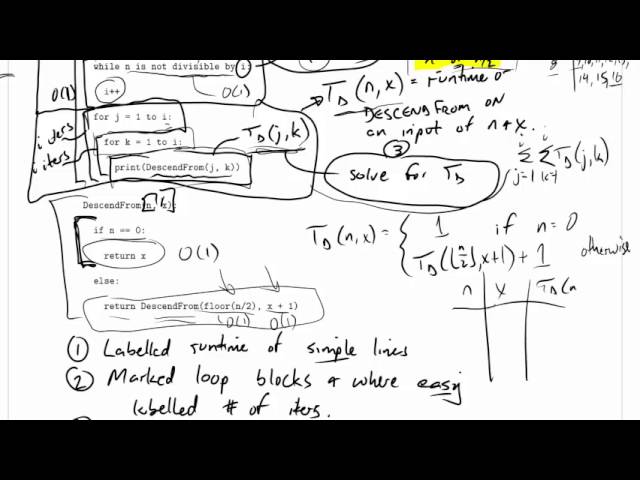 while n is not divisible by i:
O(1)
i++
O(1)
for j = 1 to i:
i iters
for k = 1 to i:
i iters
T_D(j,k)
print(DescendFrom(j, k))
n/2
14, 15, 16
T_D(n,x) = runtime of
DESCENDFROM ON
an input of n + x.
③
solve for T_D
i i
Σ Σ T_D(j,k)
j=1 k=1
DescendFrom(n, x):
if n == 0:
return x
O(1)
else:
return DescendFrom(floor(n/2), x + 1)
O(1) O(1)
T_D(n,x) = { 1 if n=0
T_D(⌊n/2⌋, x+1) + 1 otherwise
n x T_D(n
① Labelled runtime of simple lines
② Marked loop blocks + where easy
labelled # of iters.